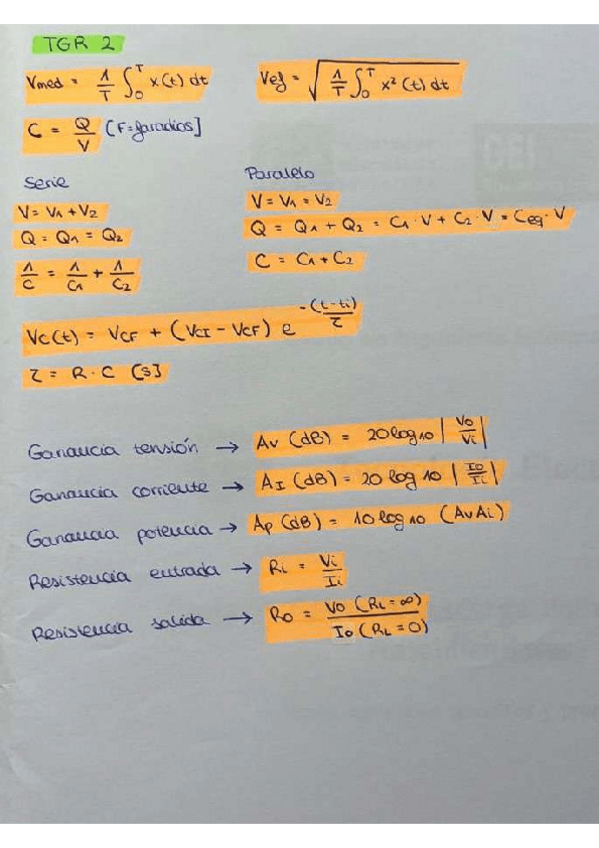 TGR 2
Vmed = 1/T ∫₀ᵀ x(t) dt
Vef = √(1/T ∫₀ᵀ x²(t) dt)
C = Q/V [F=faradios]
Serie
V = V1 + V2
Q = Q1 = Q2
1/C = 1/C1 + 1/C2
Paralelo
V = V1 = V2
Q = Q1 + Q2 = C1 · V + C2 · V = Ceq · V
C = C1 + C2
Vc(t) = VCF + (VCI - VCF) e^(-(t-ti)/τ)
τ = R · C [s]
Ganancia tensión → Av (dB) = 20 log 10 |Vo/Vi|
Ganancia corriente → AI (dB) = 20 log 10 |Io/Ii|
Ganancia potencia → Ap (dB) = 10 log 10 (AvAi)
Resistencia entrada → Ri = Vi/Ii
Resistencia salida → Ro = Vo (RL = ∞)/Io (RL = 0)